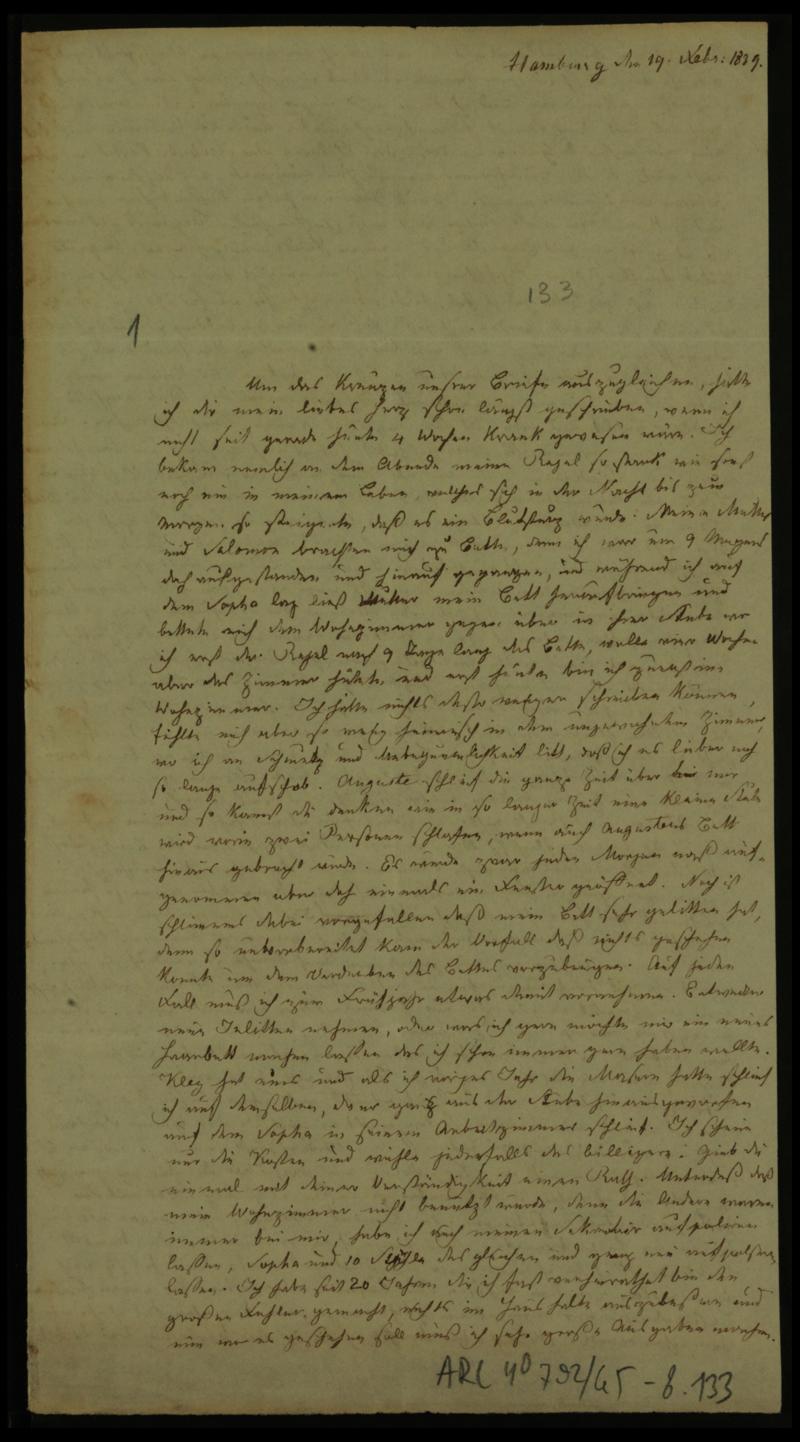 Hamburg den 19. Febr: 1839.
133
1
Um das Kreuzen unsrer Briefe auszugleichen, hätte
ich dir mein liebes Herz schon längst geschrieben, wenn ich
nicht seit gerade heute 4 Wochen krank gewesen wäre. Ich
bekam nemlich an dem Abende meine Regel so stark wie sonst
noch nie in meinem Leben, welches sich in der Nacht bis zum
Morgen so steigerte, daß es ein Blutsturz wurde. Meine Mutter
und Salomon brachten mich zu Bette, denn ich war um 9 Morgens
doch aufgestanden und hinauf gegangen, und während ich auf
dem Sopha lag ließ Mutter mein Bett herunterbringen und
bettete mich dem Wohnzimmer gegen über in ihrer Stube wo
ich erst der Regel nach 9 Tage lang das Bette, volle vier Wochen
aber das Zimmer hütete und erst heute bin ich zuerst im
Wohnzimmer. Ich hätte nichts desto weniger schreiben können,
fühlte mich aber so wenig heimisch in dem ungewohnten Zimmer,
wo ich an Schmutz und Unbequemlichkeit litt, daß ich es lieber noch
so lange aufschob. Auguste schlief die ganze Zeit über bei mir
und so kannst du denken wie in so langer Zeit eine kleine Stube
wird worin zwei Personen schlafen, wenn auch Augustens Bett
hinaus gebracht wurde. Es wurde zwar jeden Morgen naß auf-
genommen aber doch niemals ein Fenster geöffnet. Noch ist
schlimmes dabei vorgefallen daß mein Bett sehr gelitten hat,
denn so unvorbereitet kam der Vorfall daß nichts geschehen
konnte um dem Verderben des Bettes vorzubeugen. Auf jeden
Fall muß ich zum Frühjahr etwas damit vornehmen. Entweder
neue Inlitten nehmen, oder was ich gern möchte mir ein neues
Haarbett machen lassen das ich schon immer gern haben wollte.
Kley hat eins und als ich voriges Jahr die Masern hatte schlief
ich auf demselben, da er ganz aus der Stube hinausgeworfen
auf dem Sopha in seinem Arbeitszimmer schlief. Ich scheue
nur die Kosten und wähle jedenfalls das billigere. Gieb du
einmal mit deiner Verständigkeit einen Rath. Unterdeß daß
mein Wohnzimmer nicht benutzt wurde, denn die Andern waren
immer bei mir, habe ich auch meinen Sekretär aufpoliren
lassen, Sopha und 10 Stühle desgleichen und ganz neu aufpolstern
lassen. Ich habe seit 20 Jahren die ich fast verheirathet bin den
großen Fehler gemacht, nichts im Haushalte auszubessern und
nun wo es geschehen soll muß ich sehr große Ausgaben machen.
ARC 4° 792/G5 - 8.133